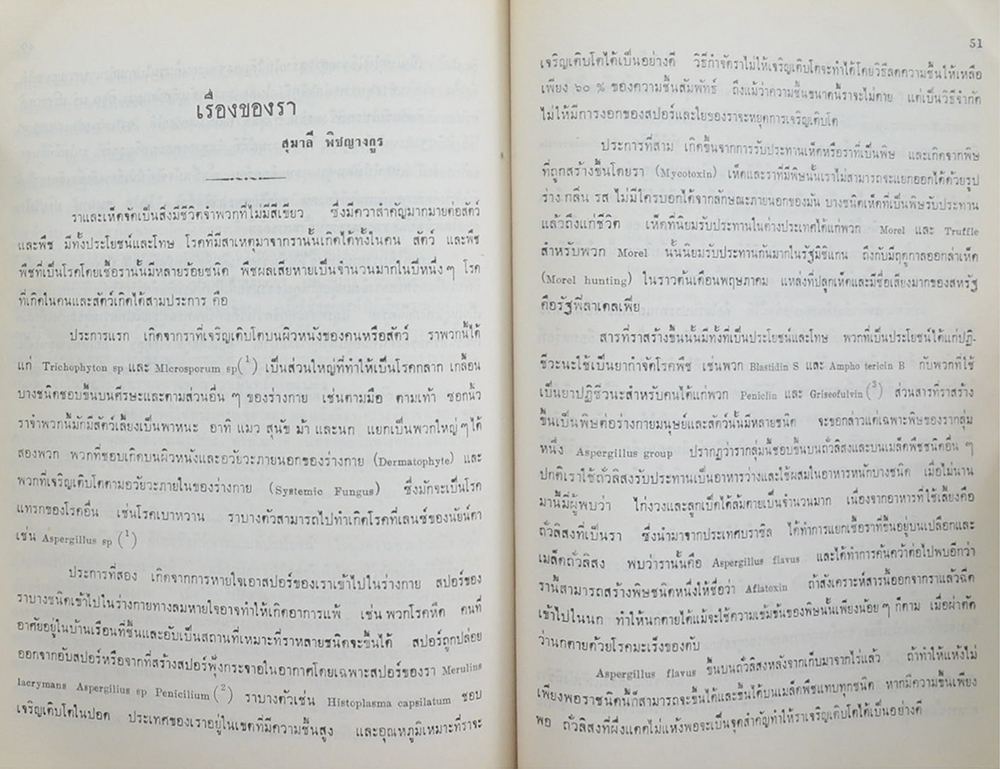 เรื่องของรา
สุมาลี พิชญางกูร
ราและเห็ดจัดเป็นสิ่งมีชีวิตจำพวกที่ไม่มีสีเขียว ซึ่งมีความสำคัญมากมายต่อสัตว์
และพืช มีทั้งประโยชน์และโทษ โรคที่มีสาเหตุมาจากรานั้นเกิดได้ทั้งในคน สัตว์ และพืช
พืชที่เป็นโรคโดยเชื้อรานั้นมีหลายร้อยชนิด พืชผลเสียหายเป็นจำนวนมากในปีหนึ่ง ๆ โรค
ที่เกิดในคนและสัตว์เกิดได้สามประการ คือ
ประการแรก เกิดจากราที่เจริญเติบโตบนผิวหนังของคนหรือสัตว์ ราพวกนี้ได้
แก่ Trichophyton sp และ Microsporum sp(1) เป็นส่วนใหญ่ที่ทำให้เป็นโรคกลาก เกลื้อน
บางชนิดชอบขึ้นบนศีรษะและตามส่วนอื่น ๆ ของร่างกาย เช่นตามมือ ตามเท้า ซอกนิ้ว
ราจำพวกนี้มักมีสัตว์เลี้ยงเป็นพาหนะ อาทิ แมว สุนัข ม้า และนก แยกเป็นพวกใหญ่ๆ ได้
สองพวก พวกที่ชอบเกิดบนผิวหนังและอวัยวะภายนอกของร่างกาย (Dermatophyte) และ
พวกที่เจริญเติบโตตามอวัยวะภายในของร่างกาย (Systemic Fungus) ซึ่งมักจะเป็นโรค
แทรกของโรคอื่น เช่นโรคเบาหวาน ราบางตัวสามารถไปทำเกิดโรคที่เลนซ์ของนัยน์ตา
เช่น Aspergillus sp (1)
ประการที่สอง เกิดจากการหายใจเอาสปอร์ของเราเข้าไปในร่างกาย สปอร์ของ
ราบางชนิดเข้าไปในร่างกายทางลมหายใจอาจทำให้เกิดอาการแพ้ เช่น พวกโรคหืด คนที่
อาศัยอยู่ในบ้านเรือนที่ชื้นและอับเป็นสถานที่เหมาะที่ราหลายชนิดจะขึ้นได้ สปอร์ถูกปล่อย
ออกจากอับสปอร์หรือจากที่สร้างสปอร์ฟุ้งกระจายในอากาศโดยเฉพาะสปอร์ของรา Merulius
lacrymans Aspergilius sp Penicilium(2) ราบางตัวเช่น Histoplasma capsilatum ชอบ
เจริญเติบโตในปอด ประเทศของเราอยู่ในเขตที่มีความชื้นสูง และอุณหภูมิเหมาะที่ราจะ
51
เจริญเติบโตได้เป็นอย่างดี วิธีกำจัดราไม่ให้เจริญเติบโตจะทำได้โดยวิธีลดความชื้นให้เหลือ
เพียง ๖๐ % ของความชื้นสัมพัทธ์ ถึงแม้ว่าความชื้นขนาดนี้ราจะไม่ตาย แต่เป็นวิธีจำกัด
ไม่ให้มีการงอกของสปอร์และใยของราจะหยุดการเจริญเติบโต
ประการที่สาม เกิดขึ้นจากการรับประทานเห็ดหรือราที่เป็นพิษ และเกิดจากพิษ
ที่ถูกสร้างขึ้นโดยรา (Mycotoxin) เห็ดและราที่มีพิษนั้นเราไม่สามารถจะแยกออกได้ด้วยรูป
ร่าง กลิ่น รส ไม่มีใครบอกได้จากลักษณะภายนอกของมัน บางชนิดเห็ดที่เป็นพิษรับประทาน
แล้วถึงแก่ชีวิต เห็ดที่นิยมรับประทานในต่างประเทศได้แก่พวก Morel และ Truffle
สำหรับพวก Morel นั้นนิยมรับประทานกันมากในรัฐมิชิแกน ถึงกับมีฤดูกาลออกล่าเห็ด
(Morel hunting) ในราวต้นเดือนพฤษภาคม แหล่งที่ปลูกเห็ดและมีชื่อเสียงมากของสหรัฐ
คือรัฐฟิลาเดลเฟีย
สารที่ราสร้างขึ้นนั้นมีทั้งที่เป็นประโยชน์และโทษ พวกที่เป็นประโยชน์ได้แก่ปฏิ-
ชีวะนะใช้เป็นยากำจัดโรคพืช เช่นพวก Blastidin S และ Ampho tericin B กับพวกที่ใช้
เป็นยาปฏิชีวนะสำหรับคนได้แก่พวก Peniclin และ Griseofulvin(3) ส่วนสารที่ราสร้าง
ขึ้นเป็นพิษต่อร่างกายมนุษย์และสัตว์นั้นมีหลายชนิด จะขอกล่าวแต่เฉพาะพิษของรากลุ่ม
หนึ่ง Aspergillus group ปรากฏว่ารากลุ่มนี้ชอบขึ้นบนถั่วลิสงและบนเมล็ดพืชชนิดอื่น ๆ
ปกติเราใช้ถั่วลิสงรับประทานเป็นอาหารว่างและใช้ผสมในอาหารหนักบางชนิด เมื่อไม่นาน
มานี้มีผู้พบว่า ไก่งวงและลูกเป็ดได้ล้มตายเป็นจำนวนมาก เนื่องจากอาหารที่ใช้เลี้ยงคือ
ถั่วลิสงที่เป็นรา ซึ่งนำมาจากประเทศบราซิล ได้ทำการแยกเชื้อราที่ขึ้นอยู่บนเปลือกและ
เมล็ดถั่วลิสง พบว่ารานั้นคือ Aspergillus flavus และได้ทำการค้นคว้าต่อไปพบอีกว่า
รานี้สามารถสร้างพิษชนิดหนึ่งให้ชื่อว่า Aflatoxin ถ้าสังเคราะห์สารนี้ออกจากราแล้วฉีด
เข้าไปในนก ทำให้นกตายได้แม้จะใช้ความเข้มข้นของพิษนั้นเพียงน้อย ๆ ก็ตาม เมื่อผ่าตัด
ว่านกตายด้วยโรคมะเร็งของตับ
Aspergillus flavus ขึ้นบนถั่วลิสงหลังจากเก็บมาจากไร่แล้ว ถ้าทำให้แห้งไม่
เพียงพอราชนิดนี้ก็สามารถจะขึ้นได้และขึ้นได้บนเมล็ดพืชแทบทุกชนิด หากมีความชื้นเพียง
พอ ถั่วลิสงที่ผึ่งแดดไม่แห้งพอจะเป็นจุดสำคัญทำให้ราเจริญเติบโตได้เป็นอย่างดี